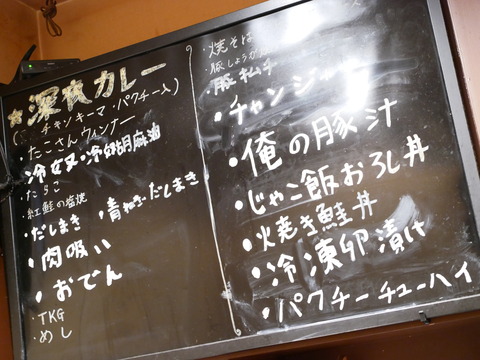 ★深夜カレー
(チキンキーマ・パクチー入)
・たこさんウィンナー
・冷奴・冷奴胡麻油
・たらこ
・紅鮭の塩焼
・だしまき ・青ねぎだしまき
・肉吸い
・おでん
・TKG
・めし
・焼そば
・豚しょうが焼
・豚キムチ
・チャンジャ
・俺の豚汁
・じゃこ飯おろし丼
・焼き鮭丼
・冷凍卵漬け
・パクチーチューハイ